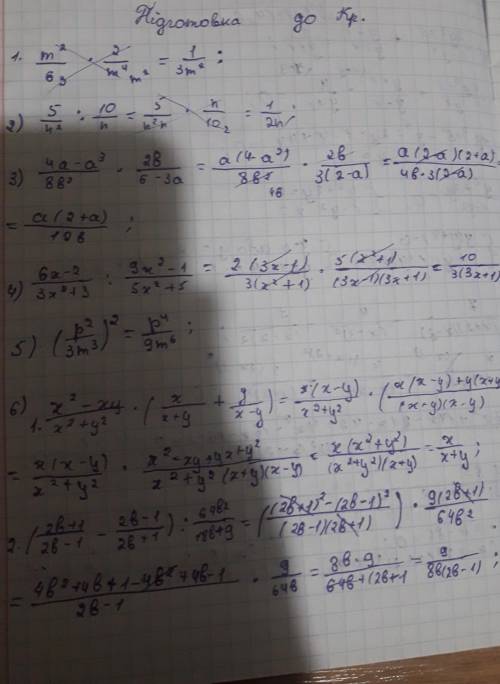 Підготовка до Кр.
1. m²/6₃ · 2/m⁴ m² = 1/3m² ;
2) 5/n² : 10/n = 5/n² n · n/10₂ = 1/2n ;
3) 4a-a³/8в² · 2в/6-3a = a(4-a²)/8в² 4в · 2в/3(2-a) = a(2-a)(2+a)/4в·3(2-a) =
= a(2+a)/12в ;
4) 6x-2/3x²+3 : 9x²-1/5x²+5 = 2(3x-1)/3(x²+1) · 5(x²+1)/(3x-1)(3x+1) = 10/3(3x+1)
5) (p²/3m³)² = p⁴/9m⁶ ;
6) 1. x²-xy/x²+y² · (x/x+y + y/x-y) = x(x-y)/x²+y² · (x(x-y)+y(x+y)/(x+y)(x-y)
= x(x-y)/x²+y² · x²-xy+yx+y²/x²+y²(x+y)(x-y) = x(x²+y²)/(x²+y²)(x+y) = x/x+y ;
2. (2в+1/2в-1 - 2в-1/2в+1) : 64в²/18в+9 = ((2в+1)²-(2в-1)²/(2в-1)(2в+1)) · 9(2в+1)/64в²
= 4в²+4в+1-4в²+4в-1/2в-1 · 9/64в = 8в·9/64в+(2в-1 = 9/8в(2в-1) ;